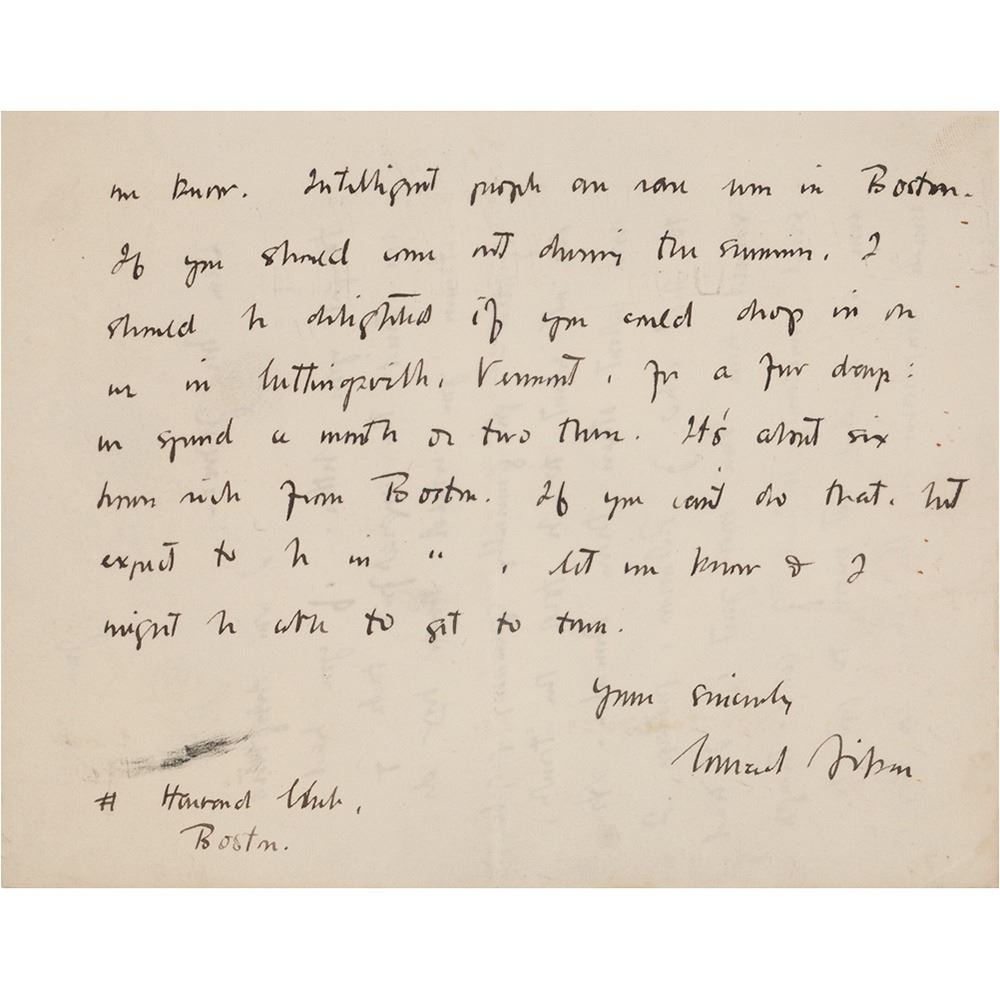 me know. Intelligent people are rare in Boston.
If you should come out during the summer, I
should be delighted if you could drop in on
us in Cuttingsville, Vermont, for a few days:
we spend a month or two there. It's about six
hours ride from Boston. If you can't do that, but
expect to be in " , let me know & I
might be able to get to town.
Yours sincerely
Conrad Aiken
# Harvard Club,
Boston.